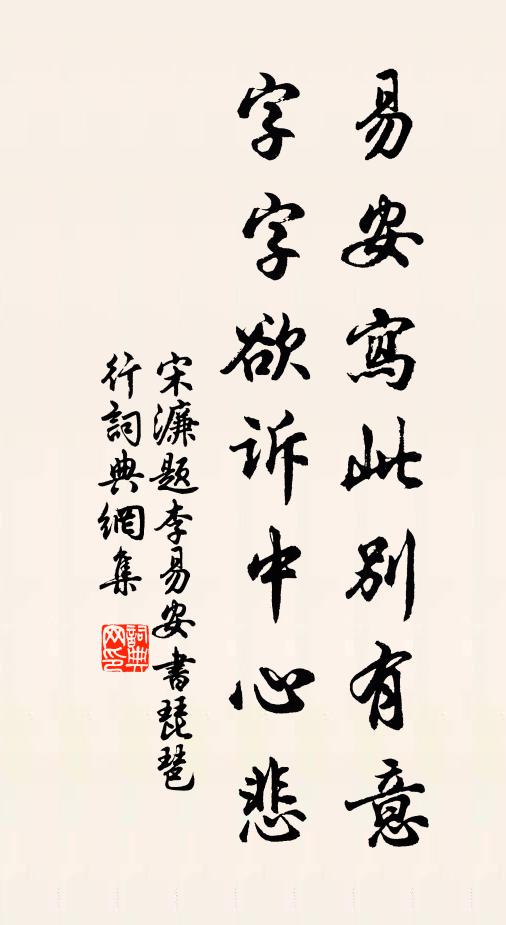 易安寫此別有意
字字欲訴中心悲
宋濂题李易安書琵琶
行詞典網集
詞典
网印